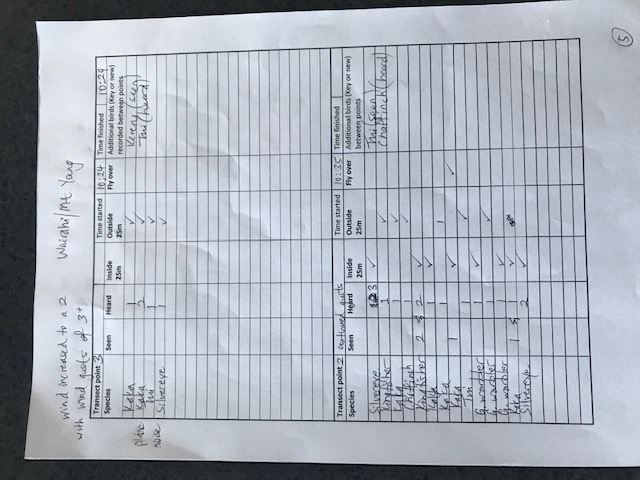 wind increased to a 2 Wairahi/Mt Young
with wind gusts of 3+
Transect point 3 Time started 10:24 Time finished 10:29
Species Seen Heard Inside 25m Outside 25m Fly over Additional birds (Key or new) recorded between points
Kaka 1 ✓ Kereru (seen)
Kaka 2 ✓ Tui (heard)
Tui 1 ✓
Silvereye 1 ✓
plane
noise
Transect point 2 continued gusts Time started 10:35 Time finished
Species Seen Heard Inside 25m Outside 25m Fly over Additional birds (Key or new) between points
Silvereye 3 ✓ Tui (seen)
Kingfisher 1 ✓ Chaffinch (heard)
Kaka 1 ✓
Chaffinch 1 ✓
Kingfisher 2 & 2 ✓
Kaka 1 ✓
Kaka 1 1
Kaka 1 ✓ ✓
Tui 1 ✓
G. warbler 1 ✓
G. warbler 1 ✓
G. warbler 1 ✓
Kaka 1 & 1 ✓
Silvereye 2 ✓
5